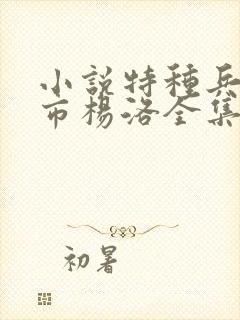 小說特種兵
市楊洛全集
初暑